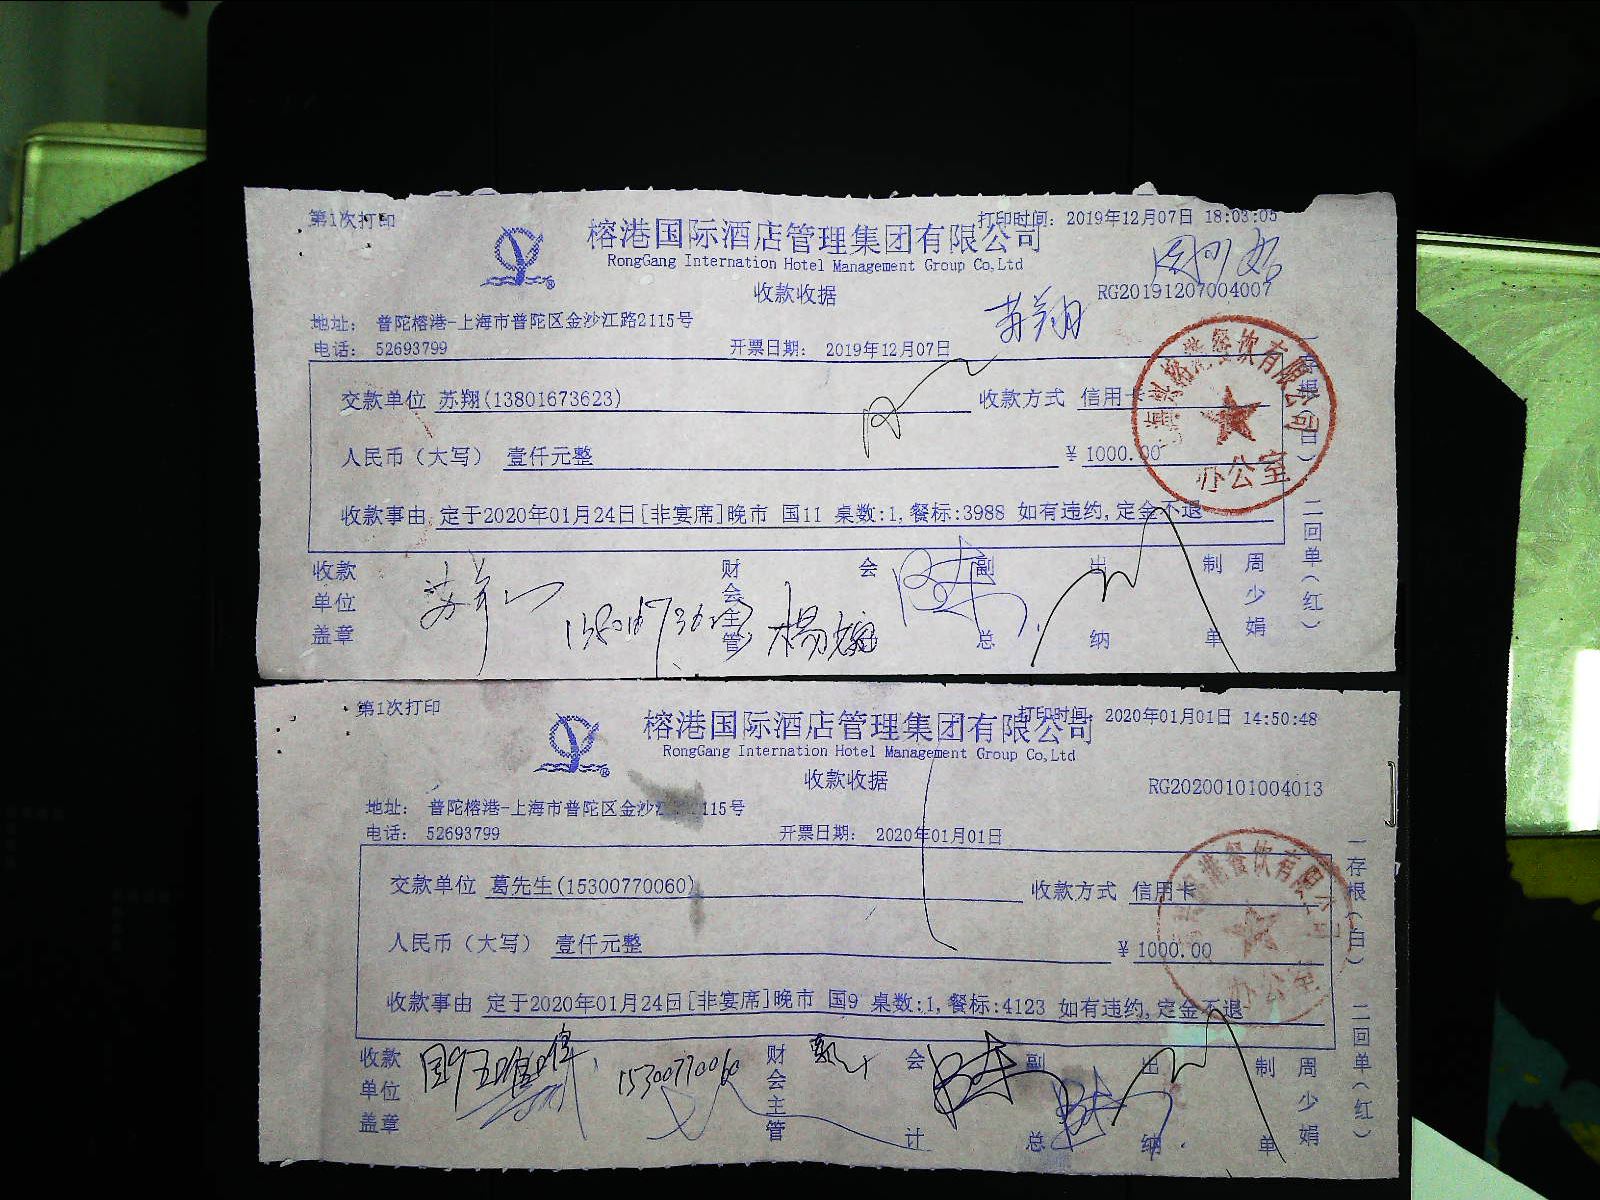 第1次打印
打印时间: 2019年12月07日 18:03:05
榕港国际酒店管理集团有限公司
RongGang Internation Hotel Management Group Co,Ltd
收款收据
RG20191207004007
苏翔
地址: 普陀榕港-上海市普陀区金沙江路2115号
电话: 52693799
开票日期: 2019年12月07日
交款单位 苏翔(13801673623)
收款方式 信用卡
人民币(大写) 壹仟元整
¥ 1000.00
收款事由 定于2020年01月24日[非宴席]晚市 国11 桌数:1,餐标:3988 如有违约,定金不退
榕港餐饮有限公司
办公室
一存根(白) 二回单(红)
收款单位盖章
苏翔
13801673623
财会主管
会
副总
出纳
制单
周少娟
第1次打印
打印时间 2020年01月01日 14:50:48
榕港国际酒店管理集团有限公司
RongGang Internation Hotel Management Group Co,Ltd
收款收据
RG20200101004013
地址: 普陀榕港-上海市普陀区金沙 2115号
电话: 52693799
开票日期: 2020年01月01日
交款单位 葛先生(15300770060)
收款方式 信用卡
人民币(大写) 壹仟元整
¥ 1000.00
收款事由 定于2020年01月24日[非宴席]晚市 国9 桌数:1,餐标:4123 如有违约,定金不退
餐饮有限公司
办公室
一存根(白) 二回单(红)
收款单位盖章
15300770060
财会主管
会计
副总
出纳
制单
周少娟